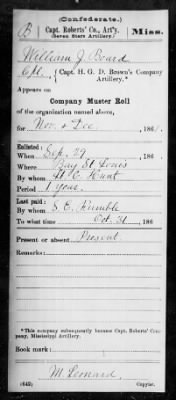 (Confederate.)
B Capt. Roberts' Co., Art'y. Miss.
(Seven Stars Artillery.)
William J. Board
Cpl., Capt. H. G. D. Brown's Company
Artillery.*
Appears on
Company Muster Roll
of the organization named above,
for Nov. & Dec., 186
Enlisted:
When Sep. 29, 186
Where Bay St Louis
By whom Hunt
Period 1 year.
Last paid:
By whom S. E. Rumble
To what time Oct. 31, 186
Present or absent Present
Remarks:
*This company subsequently became Capt. Roberts' Company, Mississippi Artillery.
Book mark:
M. Leonard
(642) Copyist.